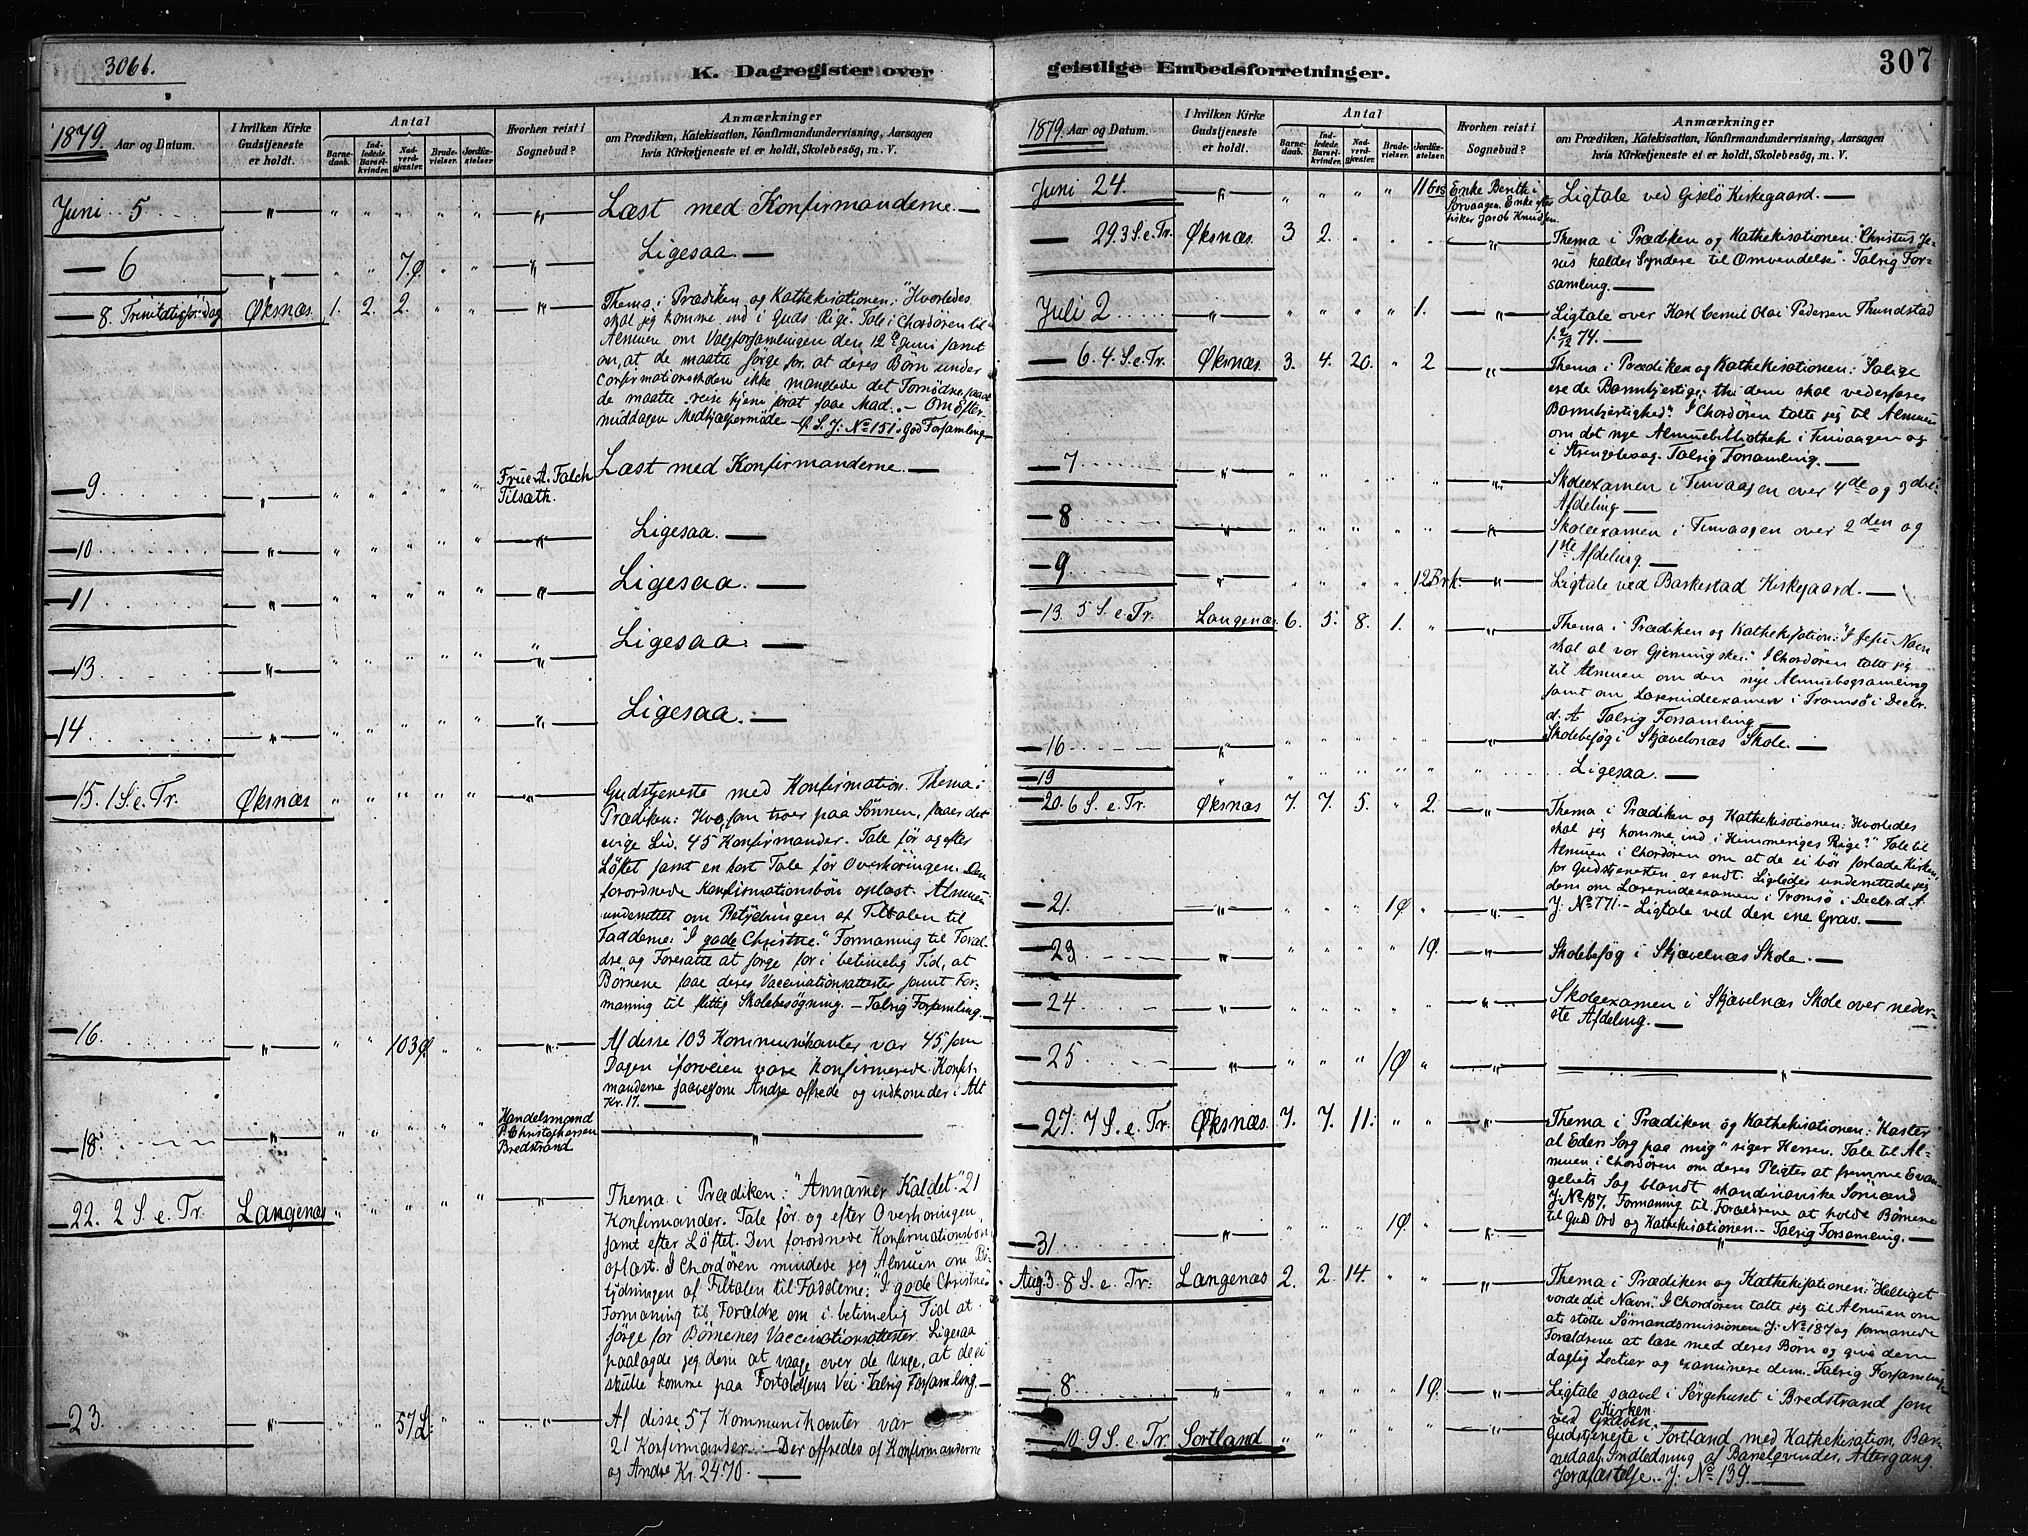 306b.
K. Dagregister over
1879. Aar og Datum.
I hvilken Kirke Gudstjeneste er holdt.
Antal
Barnedaab.
Indledede Barselkvinder.
Nadverdgjæster.
Brudevielser.
Jordfæstelser.
Hvorhen reist i Sognebud?
Anmærkninger
om Prædiken, Katekisation, Konfirmandundervisning, Aarsagen
hvis Kirketjeneste ei er holdt, Skolebesög, m. V.
Juni 5 Læst med Konfirmanderne.
6 7Ø Ligesaa.
8. Trinitatissöndag Øksnæs 1. 2. 2. Thema i Prædiken og Kathekisationen: "Hvorledes
skal jeg komme ind i Guds Rige". Tale i Chordören til
Almuen om Valgforsamlingen den 12te Juni samt
om, at de maatte sörge for, at deres Börn under
Confirmationstiden ikke manglede det Fornødne, saa at
de maatte reise hjem forat faae Mad. – Om Eftermiddagen
Medhjælpermöde – J. No 151. God Forsamling.
9 Frue A. Falch Tilsæth. Læst med Konfirmanderne.
10 Ligesaa.
11 Ligesaa
13 Ligesaa
14 Ligesaa.
15. 1 S. e. Tr. Øksnæs Gudstjeneste med Konfirmation. Thema i
Prædiken: Hvo, som troer paa Sönnen, faaer det
evige Liv. 45 Konfirmander. Tale för og efter
Löftet samt en kort Tale för Overhöringen. Den
forordnede Konfirmationsbön oplæst. Almuen
underrettet om Betydningen af Tiltalen til
Fadderne: "I gode Christne." Formaning til Forældre
og Foresatte at sörge for i betimelig Tid, at
Börnene faae deres Vaccinationsattester samt Formaning
til flittig Skolebesögning. – Talrig Forsamling.
16. 103Ø Af disse 103 Kommunikanter var 45, som
Dagen iforveien vare Konfirmerede. Konfirmanderne
saavelsom Andre offrede og indkom der i Alt
Kr. 17.
18. Handelsmand P. Christophersen Bredstrand
22. 2 S. e. Tr. Langenæs Thema i Prædiken: "Annammer Kaldet" 21
Konfirmander. Tale för og efter Overhöringen,
samt efter Löftet. Den forordnede Konfirmationsbön
oplæst. I Chordören mindede jeg Almuen om Betydningen
af Tiltalen til Fadderne: "I gode Christne"
Formaning til Forældre om i betimelig Tid at
sörge for Börnenes Vaccinationsattester. Ligesaa
paalagde jeg dem at vaage over de Unge, at de ei
skulle komme paa Fortabelsens Vei. Talrig Forsamling.
23. 57L: Af disse 57 Kommunikanter var
21 Konfirmander – Der offredes af Konfirmanderne
og Andre Kr. 24.70.
geistlige Embedsforretninger. 307
1879. Aar og Datum.
I hvilken Kirke Gudstjeneste er holdt.
Antal
Barnedaab.
Indledede Barselkvinder.
Nadverdgjæster.
Brudevielser.
Jordfæstelser.
Hvorhen reist i Sognebud?
Anmærkninger
om Prædiken, Katekisation, Konfirmandundervisning, Aarsagen
hvis Kirketjeneste ei er holdt, Skolebesög, m. V.
Juni 24. 11 Enke Berith i Sorvaagen. Enke efter Fisker Jacob Knudsen. Ligtale ved Gislö Kirkegaard.
29. 3 S. e. Tr. Øksnæs 3 2. Thema i Prædiken og Kathekisationen: "Christus Jesus
kalder Syndere til Omvendelse". Talrig Forsamling.
Juli 2 1. Ligtale over Karl Cornil Olai Pedersen Thunstad
f. 2/12 74.
6. 4. S. e. Tr. Øksnæs. 3. 4. 20. 2 Thema i Prædiken og Kathekisationen: "Salige
ere de Barmhjertige; thi dem skal vederfares
Barmhjertighed". I Chordören talte jeg til Almuen
om det nye Almuebibliothek i Tinvaagen og
i Strengelvaag. Talrig Forsamling.
7 Skoleexamen i Tinvaagen over 4de og 3die
Afdeling
8 Skoleexamen i Tinvaagen over 2den og
1ste Afdeling.
9 12 Brk. Ligtale ved Barkestad Kirkegaard.
13. 5 S. e. Tr. Langenæs. 6. 5. 8. 1. Thema i Prædiken og Kathekisation: "I Jesu Navn
skal al vor Gjerning ske." I Chordören talte jeg
til Almuen om den nye Almuebogsamling
samt om Lærerindeexamen i Tromsö i Decbr.
d. A Talrig Forsamling
16 Skolebesög i Skjævelnæs Skole.
19 Ligesaa.
20. 6 S. e. Tr. Øksnæs 7. 7. 5. 2. Thema i Prædiken og Kathekisationen: "Hvorledes
skal jeg komme ind i Himmeriges Rige?" Tale til
Almuen i Chordören om at de ei bör forlade Kirken,
för Gudstjenesten er endt. Ligeledes underrettede jeg
dem om Lærerindeexamen i Tromsö i Decbr. d. A.
J. No 171. – Ligtale ved den ene Grav.
21. 1Ø
23 1Ø. Skolebesög i Skjævelnæs Skole.
24 Skoleexamen i Skjævelnæs Skole over nederste
Afdeling.
25 1Ø
27: 7 S. e. Tr. Øksnæs 7. 7. 11: Thema i Prædiken og Kathekisationen: "Kaster
al Eders Sorg paa mig" siger Herren. Tale til Almuen
i Chordören om deres Pligter at fremme Evangeliets
Sag blandt skandinaviske Sömænd
J. No 187. Formaning til Forældrene at holde Börnene
til Guds Ord og Kathekisationen. – Talrig Forsamling.
31 1Ø
Aug. 3. 8 S. e. Tr: Langenæs 2. 2. 14. Thema i Prædiken og Kathekisationen: "Helliget
vorde dit Navn". I Chordören talte jeg til Almuen om
at stötte Sömandsmissionen J. No 187 og formanede
Forældrene at læse med deres Börn og give dem
daglig Lectier og examinere dem. Talrig Forsamling.
8 1Ø. Ligtale saavel i Sörgehuset i Bredstrand som
ved Kirken Graven.
10. 9 S. e. Tr Sortland Gudstjeneste i Sortland med Kathekisation, Barnedaab,
Indledning af Barselqvinder, Altergang
Jordfæstelse. J. No 139.